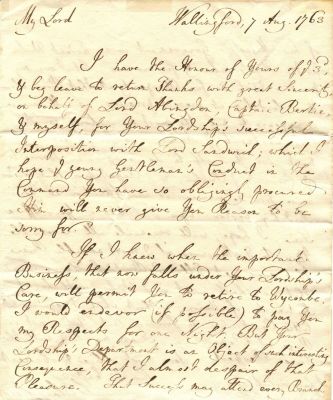 My Lord Wallingford, 7 Aug. 1763
I have the Honour of Yours of ye 3d
& beg leave to return Thanks with great Sincerity
on behalf of Lord Abingdon, Captain Bertie,
& myself, for Your Lordship's successful
Interposition with Lord Sandwich; which I
hope ye young Gentleman's Conduct in the
Command You have so obligingly procured
Him will never give You Reason to be
sorry for.
If I knew when the important
Business, that now falls under Your Lordship's
Care, will permit You to retire to Wycombe,
I would endeavor (if possible) to pay You
my Respects for one Night. But Your
Lordship's Department is an Object of such interesting
Consequence, that I almost despair of that
Pleasure. That Success may attend every Branch